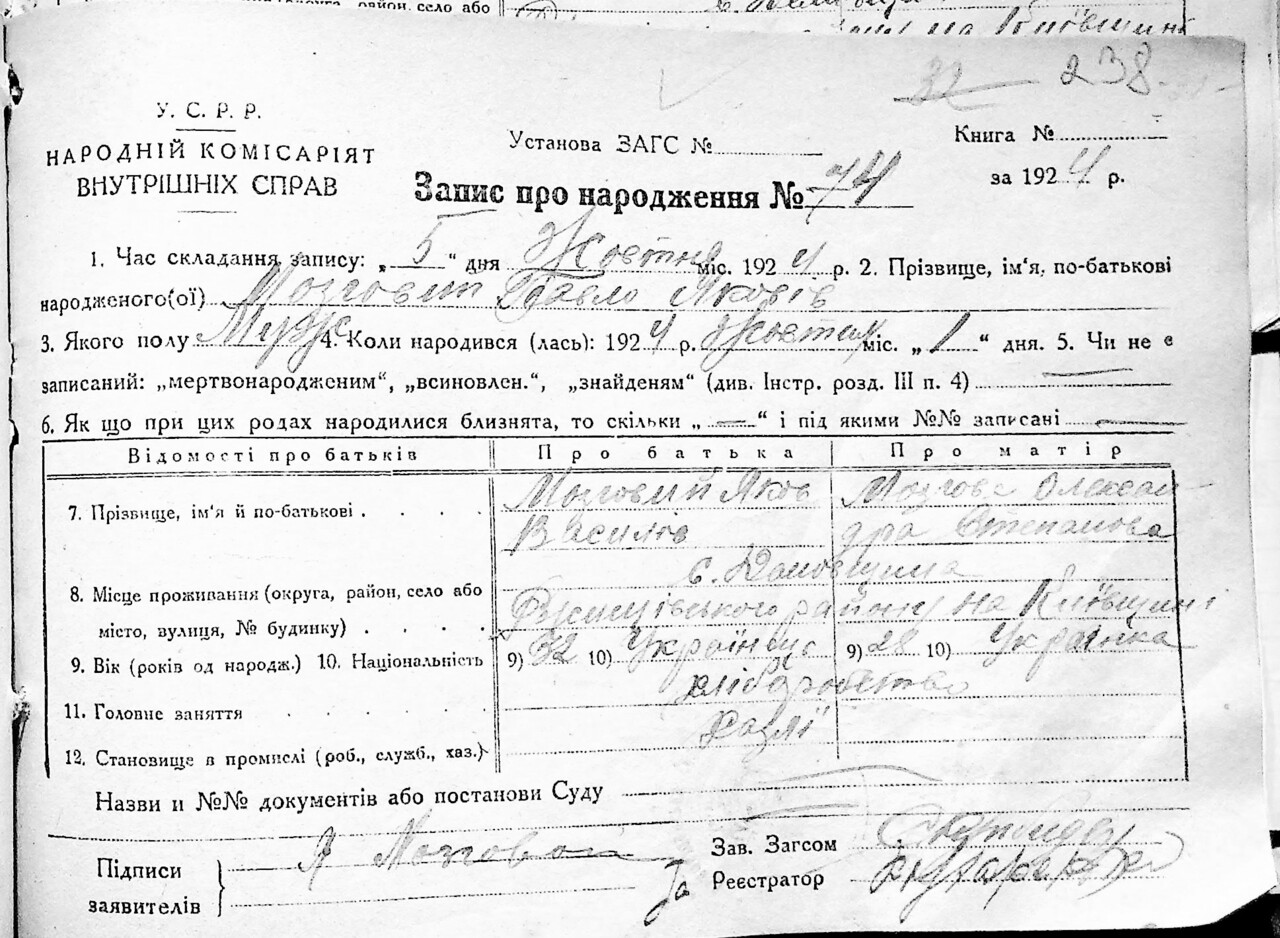 район, село або
на Київщині
32 238
У. С. Р. Р.
НАРОДНІЙ КОМІСАРІЯТ
ВНУТРІШНІХ СПРАВ
Установа ЗАГС №
Книга №
за 1924 р.
Запис про народження № 74
1. Час складання запису: „ 5 “ дня Жовтня міс. 1924 р. 2. Прізвище, ім‘я, по-батькові
народженого(ої) Мозговий Павло Яковів
3. Якого полу Муж 4. Коли народився (лась): 1924 р. Жовтня міс. „ 1 “ дня. 5. Чи не є
записаний: „мертвонародженим“, „всиновлен.“, „знайденям“ (див. Інстр. розд. III п. 4)
6. Як що при цих родах народилися близнята, то скільки „ — “ і під якими №№ записані —
Відомості про батьків Про батька Про матір
7. Прізвище, ім‘я й по-батькові . . . . Мозговий Яків Мозгова Олексан
Василів дра Степанова
с.
8. Місце проживання (округа, район, село або
місто, вулиця, № будинку) . . . . Ржищівського району на Київщині
9. Вік (років од народж.) 10. Національність 9) 32 10) Українец 9) 28 10) Українка
хліборобство
11. Головне заняття . . . . .
12. Становище в промислі (роб., служб., хаз.)
Назви и №№ документів або постанови Суду
Підписи
заявителів
Я Мозговой
Зав. Загсом
Реєстратор